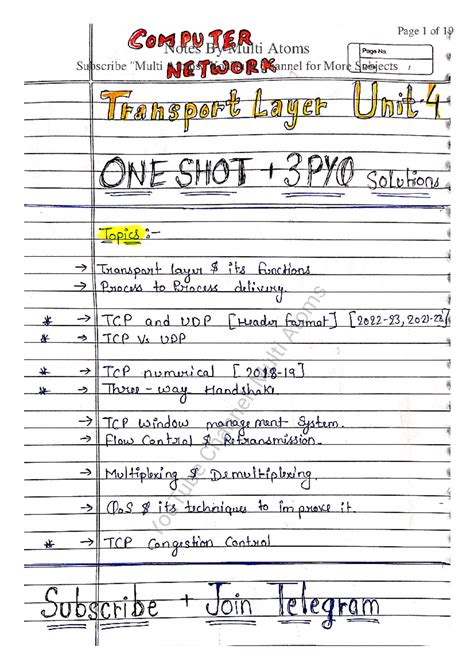 Page 1 of 19
COMPUTER
Notes By Multi Atoms
Page No.
Subscribe "Multi Channel for More Subjects
NETWORK
Transport Layer Unit 4
ONE SHOT + 3PYQ Solutions
Topics :-
→ Transport layer & its functions
→ Process to Process delivery.
* → TCP and UDP [Header format] [2022-23, 2021-22]
* → TCP Vs UDP
* → TCP numerical [2018-19]
* → Three-way Handshake
→ TCP Window management System.
→ Flow Control & Retransmission.
→ Multiplexing & Demultiplexing.
→ QoS & its techniques to improve it.
* → TCP Congestion Control
YouTube Channel Multi Atoms
Subscribe + Join Telegram